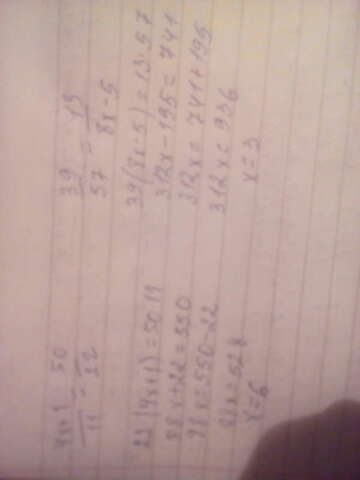 (4x+1)/11 = 50/22
22(4x+1)=50·11
88x+22=550
88x=550-22
88x=528
x=6
39/57 = 13/(8x-5)
39(8x-5)=13·57
312x-195=741
312x=741+195
312x=936
x=3